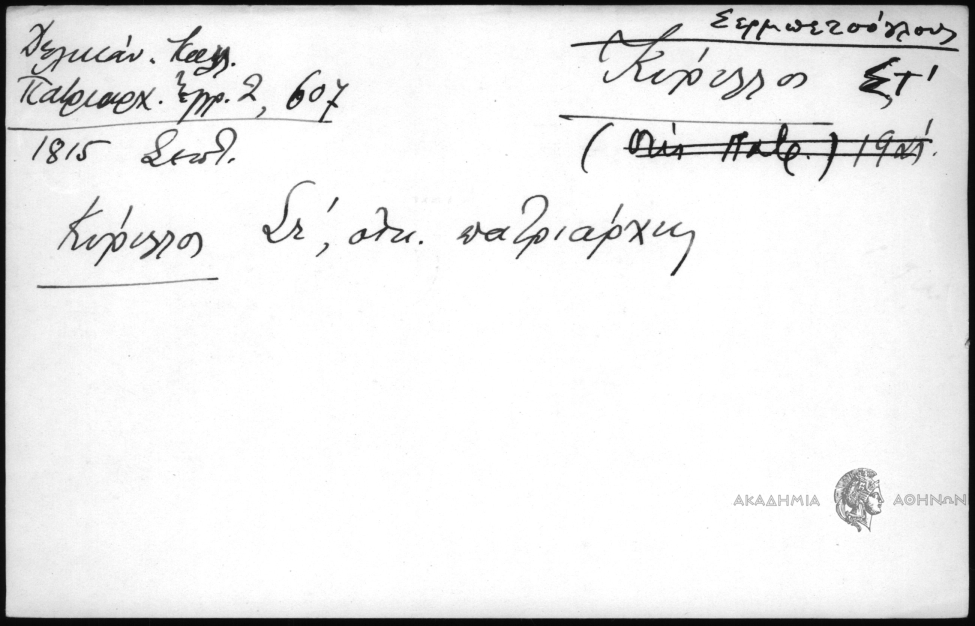 Δελικάν. Καλ.
Πατριαρχ. Ἔγγρ. 2, 607
1815 Σεπτ.
Σερμπετσόγλους
Κύριλλος ΣΤ'
( Οἰκ Πατρ. ) 19
Κύριλλος Στ', οἰκ. πατριάρχης
ΑΚΑΔΗΜΙΑ ΑΘΗΝΩΝ